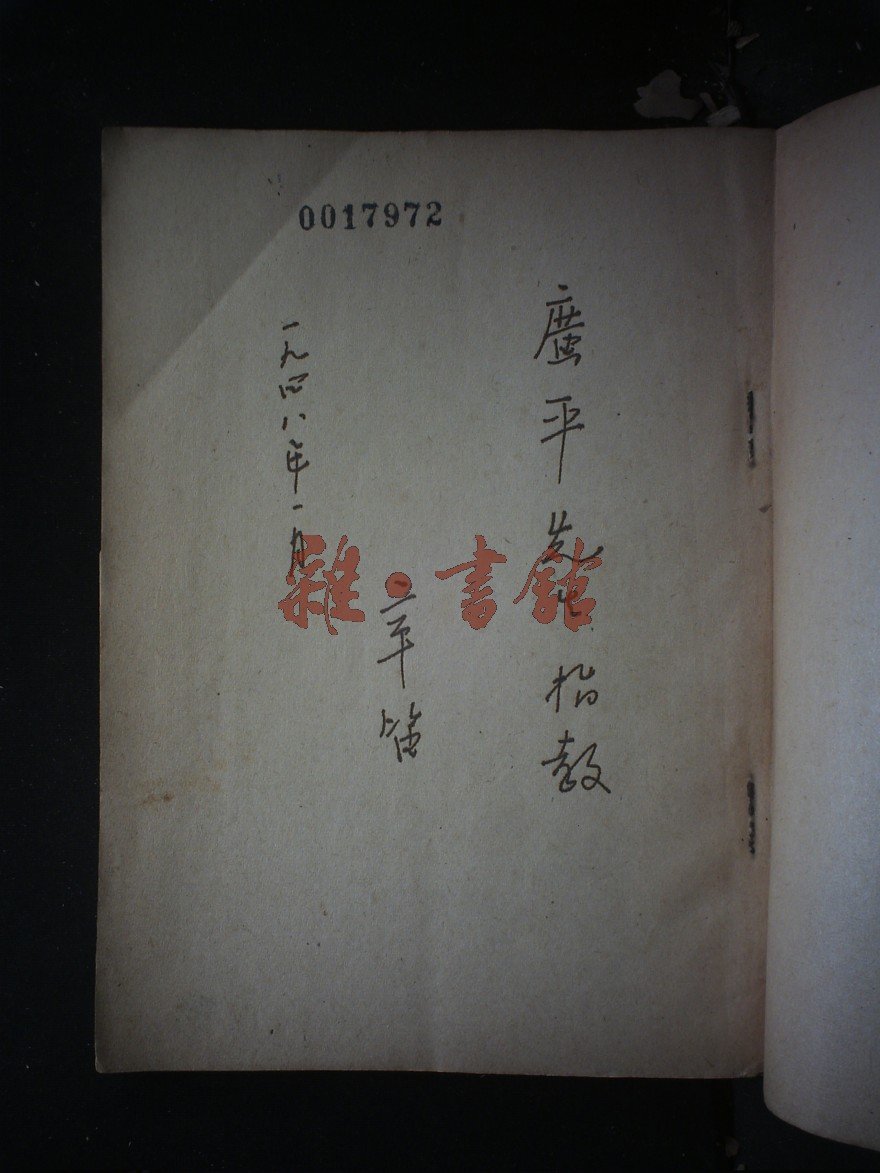 0017972
廣平先生指教
辛笛
一九四八年一月
雜·書館